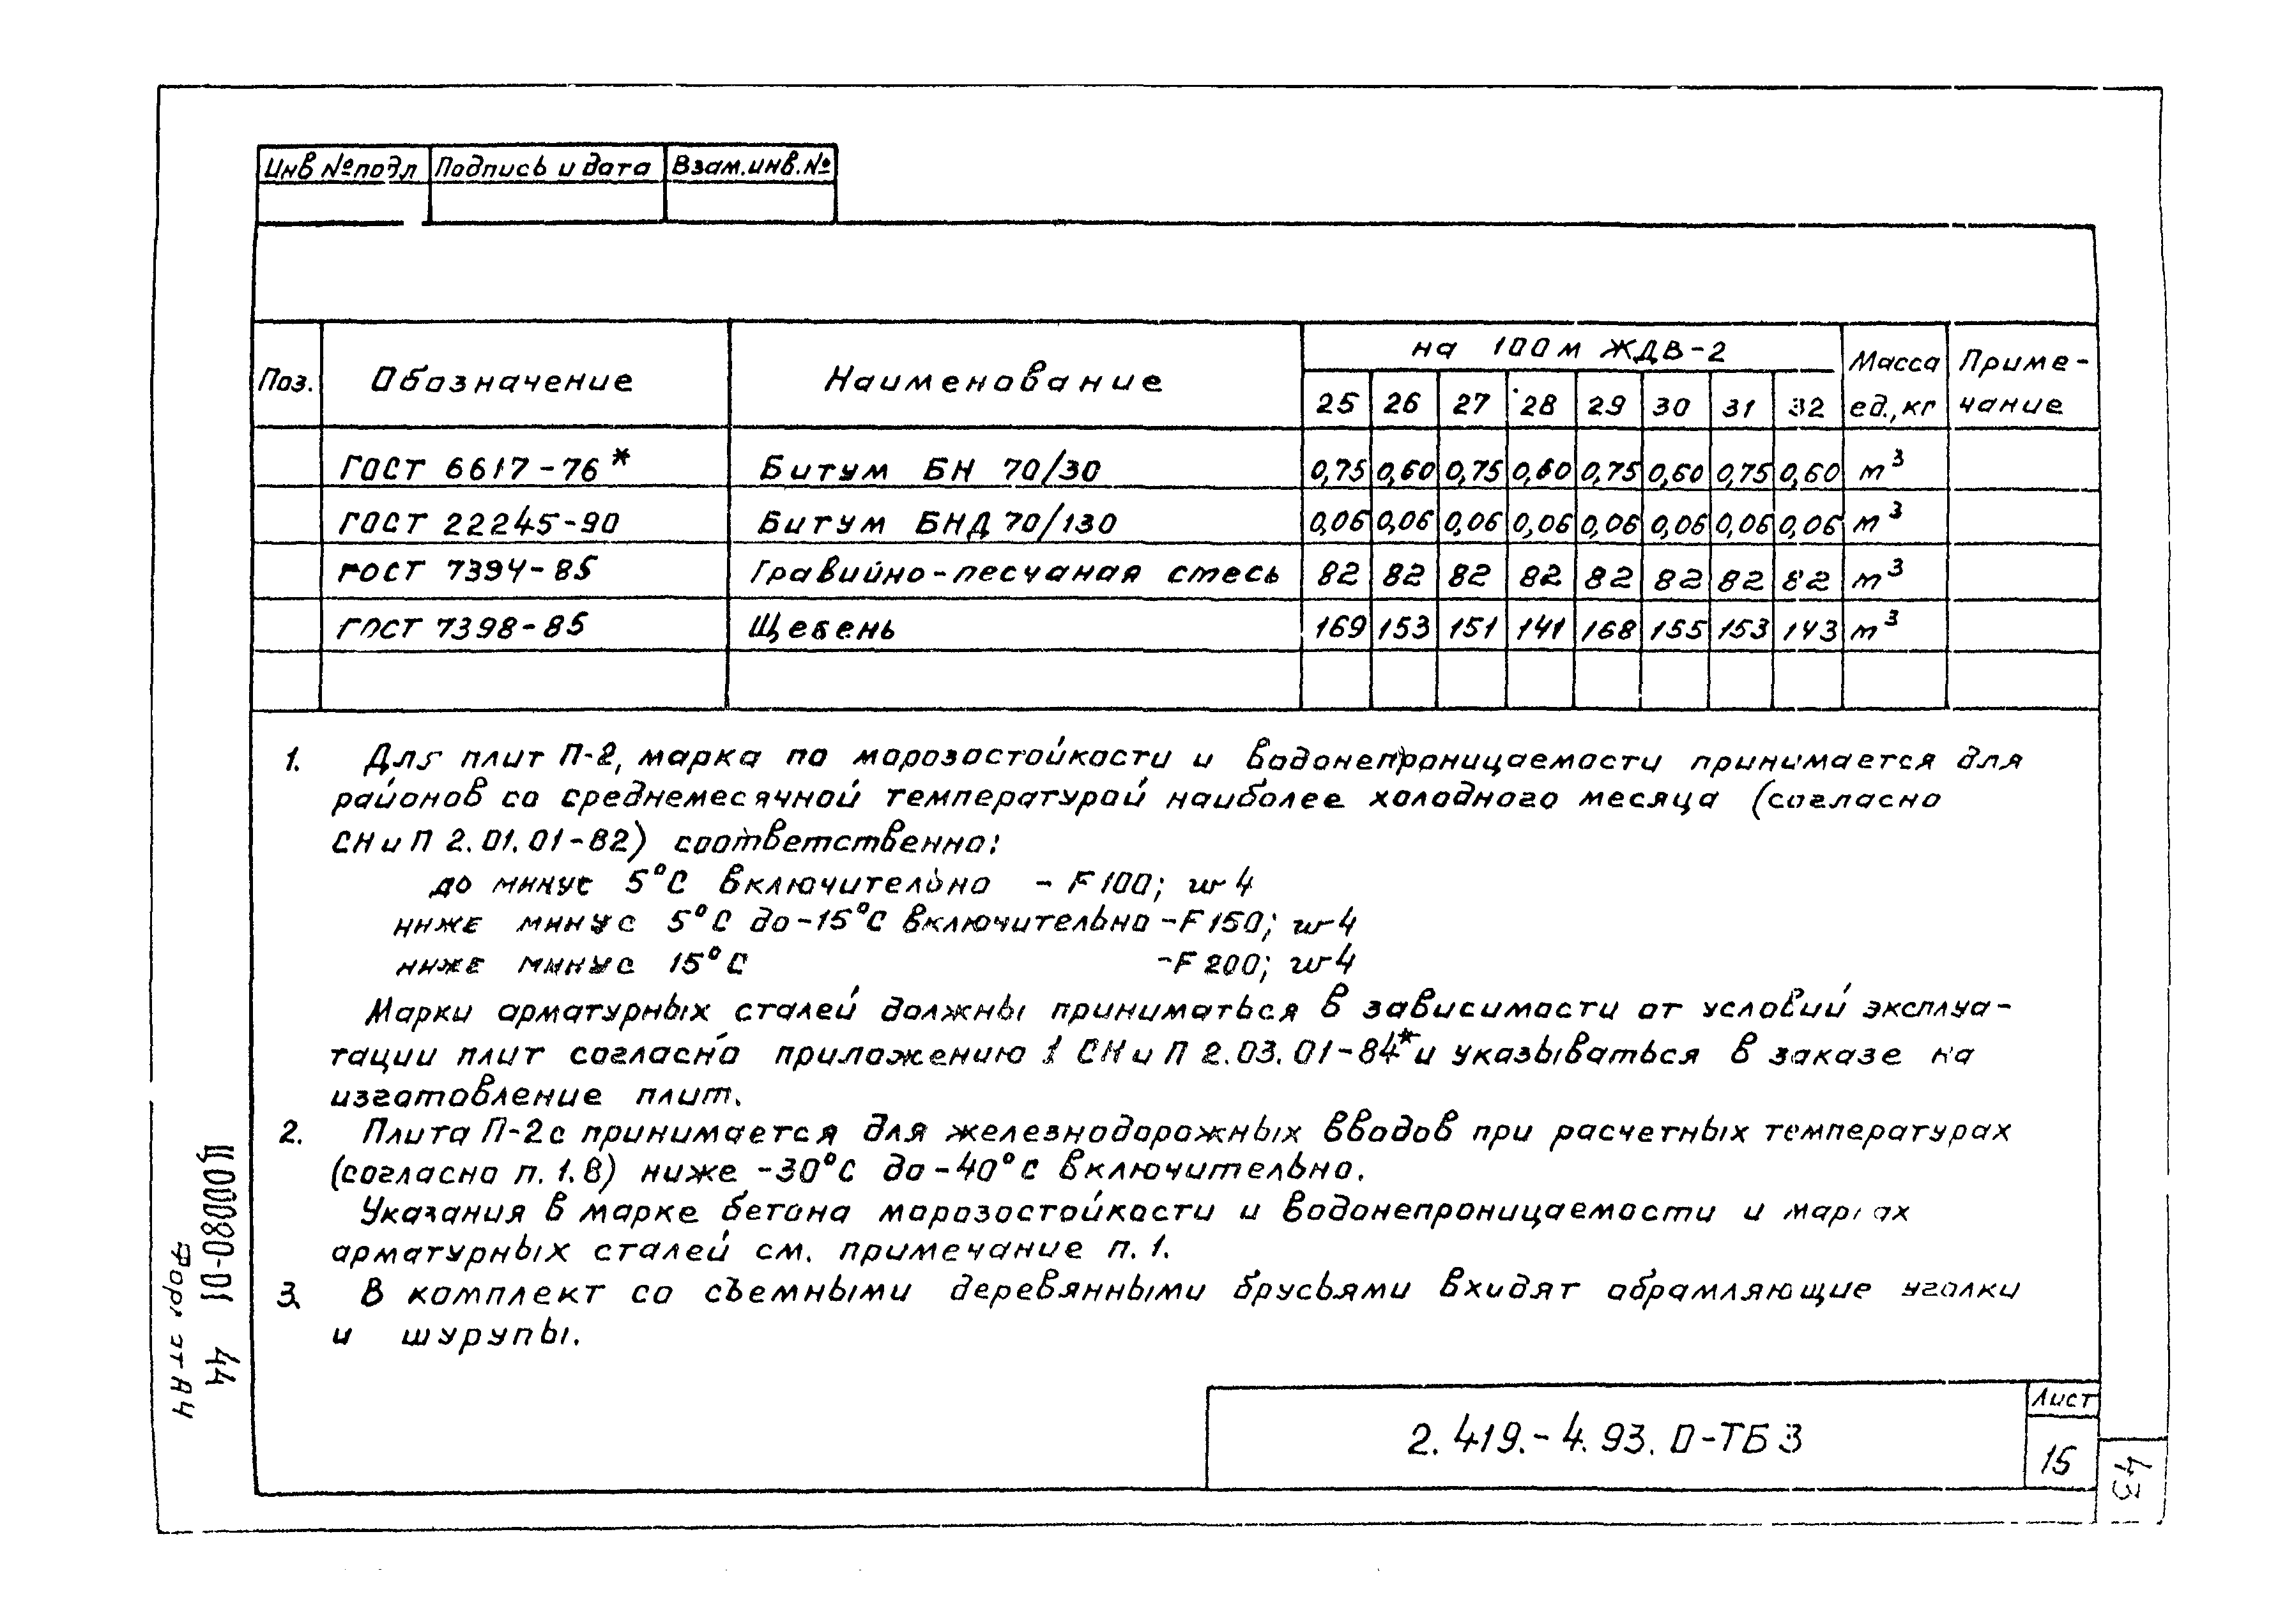 Инв №подл Подпись и дата Взам.инв.№
Поз. Обозначение Наименование на 100м ЖДВ-2 Масса ед.,кг Приме-чание
25 26 27 28 29 30 31 32
ГОСТ 6617-76* Битум БН 70/30 0,75 0,60 0,75 0,60 0,75 0,60 0,75 0,60 м³
ГОСТ 22245-90 Битум БНД 70/130 0,06 0,06 0,06 0,06 0,06 0,06 0,06 0,06 м³
ГОСТ 7394-85 Гравийно-песчаная смесь 82 82 82 82 82 82 82 82 м³
ГОСТ 7398-85 Щебень 169 153 151 141 168 155 153 143 м³
1. Для плит П-2, марка по морозостойкости и водонепроницаемости принимается для
районов со среднемесячной температурой наиболее холодного месяца (согласно
СНиП 2.01.01-82) соответственно:
до минус 5°С включительно - F100; w4
ниже минус 5°С до -15°С включительно - F150; w4
ниже минус 15°С - F200; w4
Марки арматурных сталей должны приниматься в зависимости от условий эксплуа-
тации плит согласно приложению 1 СНиП 2.03.01-84* и указываться в заказе на
изготовление плит.
2. Плита П-2с принимается для железнодорожных вводов при расчетных температурах
(согласно п. 1.8) ниже -30°С до -40°С включительно.
Указания в марке бетона морозостойкости и водонепроницаемости и марках
арматурных сталей см. примечание п. 1.
3. В комплект со съемными деревянными брусьями входят обрамляющие уголки
и шурупы.
2.419.-4.93.0-ТБ3
Лист
15
43
Ц00080-01 44
А4